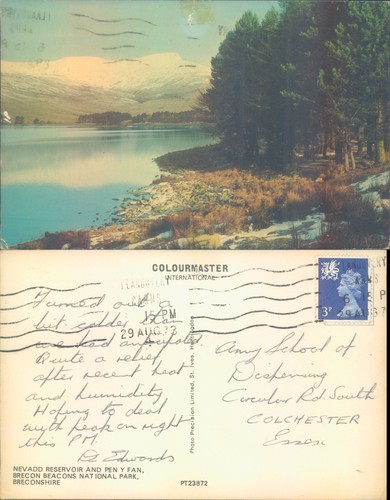 COLOURMASTER
INTERNATIONAL
LLANDOVERY
DYFED
15 PM
29 AUG 73
3P
Turned out a
bit colder than
we had anticipated.
Quite a relief
after recent heat
and humidity.
Hoping to deal
with peak on right
this PM.
D Edwards
Army School of
Dispensing
Circular Rd South
COLCHESTER
Essex
Photo Precision Limited, St. Ives, Huntingdon
NEVADD RESERVOIR AND PEN Y FAN,
BRECON BEACONS NATIONAL PARK,
BRECONSHIRE
PT23872